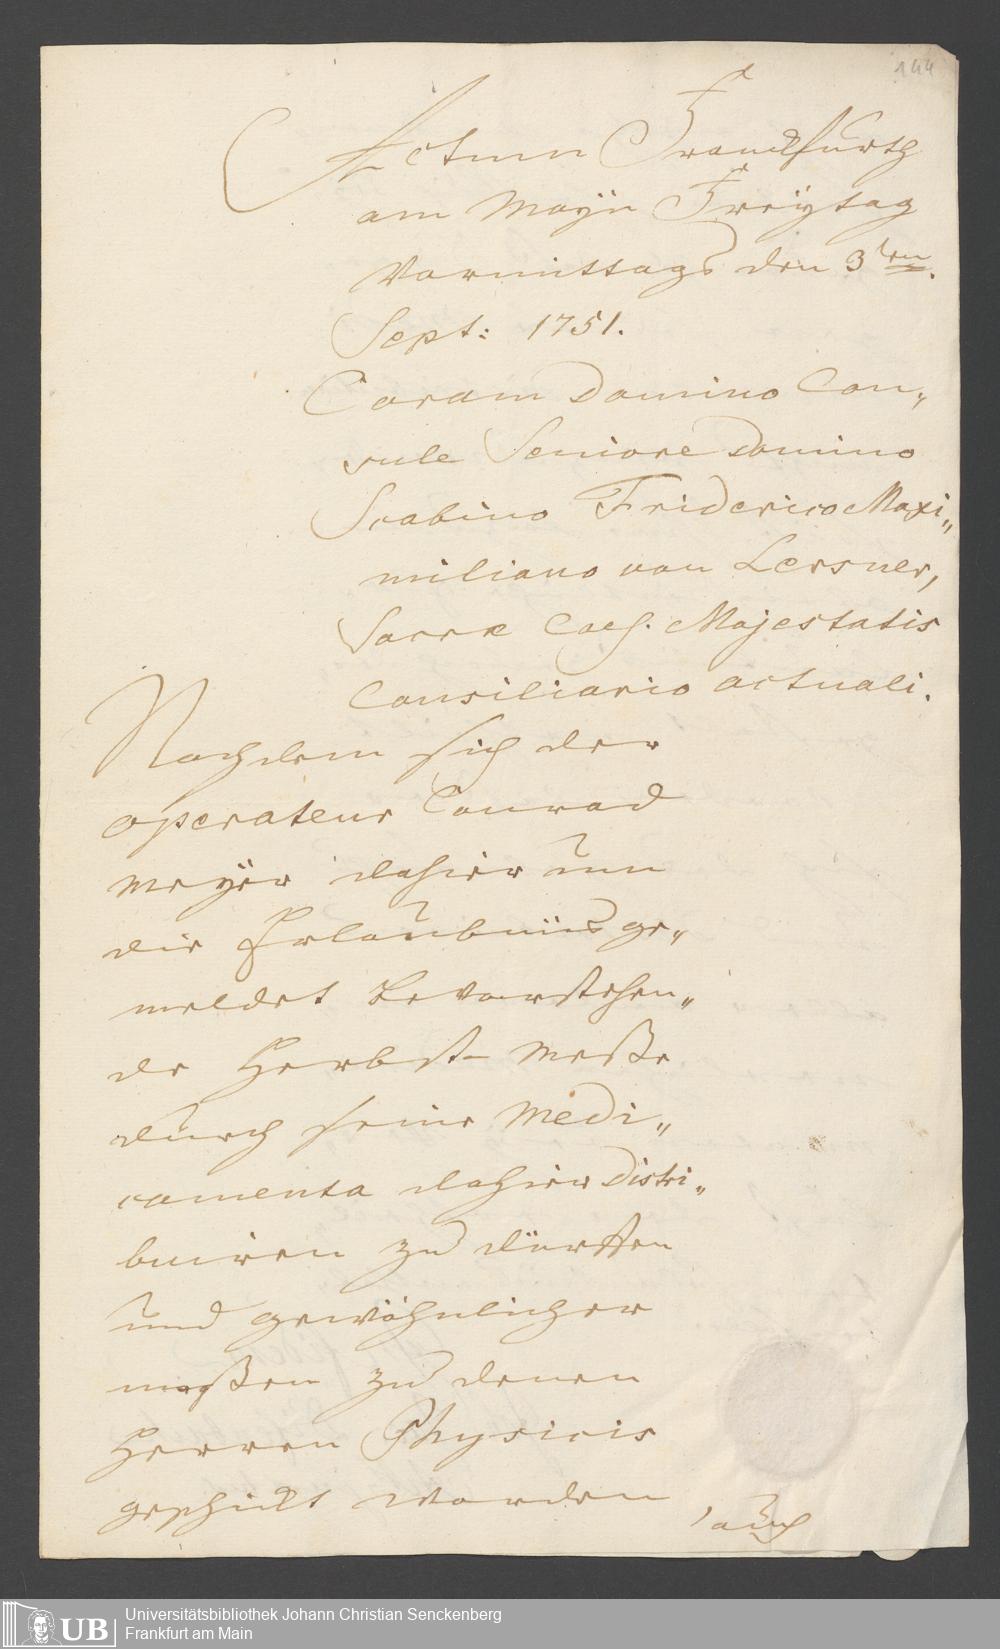 144
Actum Franckfurth
am Mayn Freÿtag
Vormittags den 3ten.
Sept: 1751.
Coram Domino Con„
sule Seniore Domino
Scabino Friderico Maxi„
miliano von Lersner,
Sacræ Caes. Majestatis
Consiliario actuali.
Nachdem sich der
operateur Conrad
Meÿer dahier um
die Erlaubnüs ge„
meldet bevorstehen„
de Herbst Meße
durch seine Medi„
camenta dahier Distri„
buiren zu dürffen
und gewöhnlicher
maßen zu denen
Herren Physicis
geschickt worden
, auch
UB Universitätsbibliothek Johann Christian Senckenberg
Frankfurt am Main